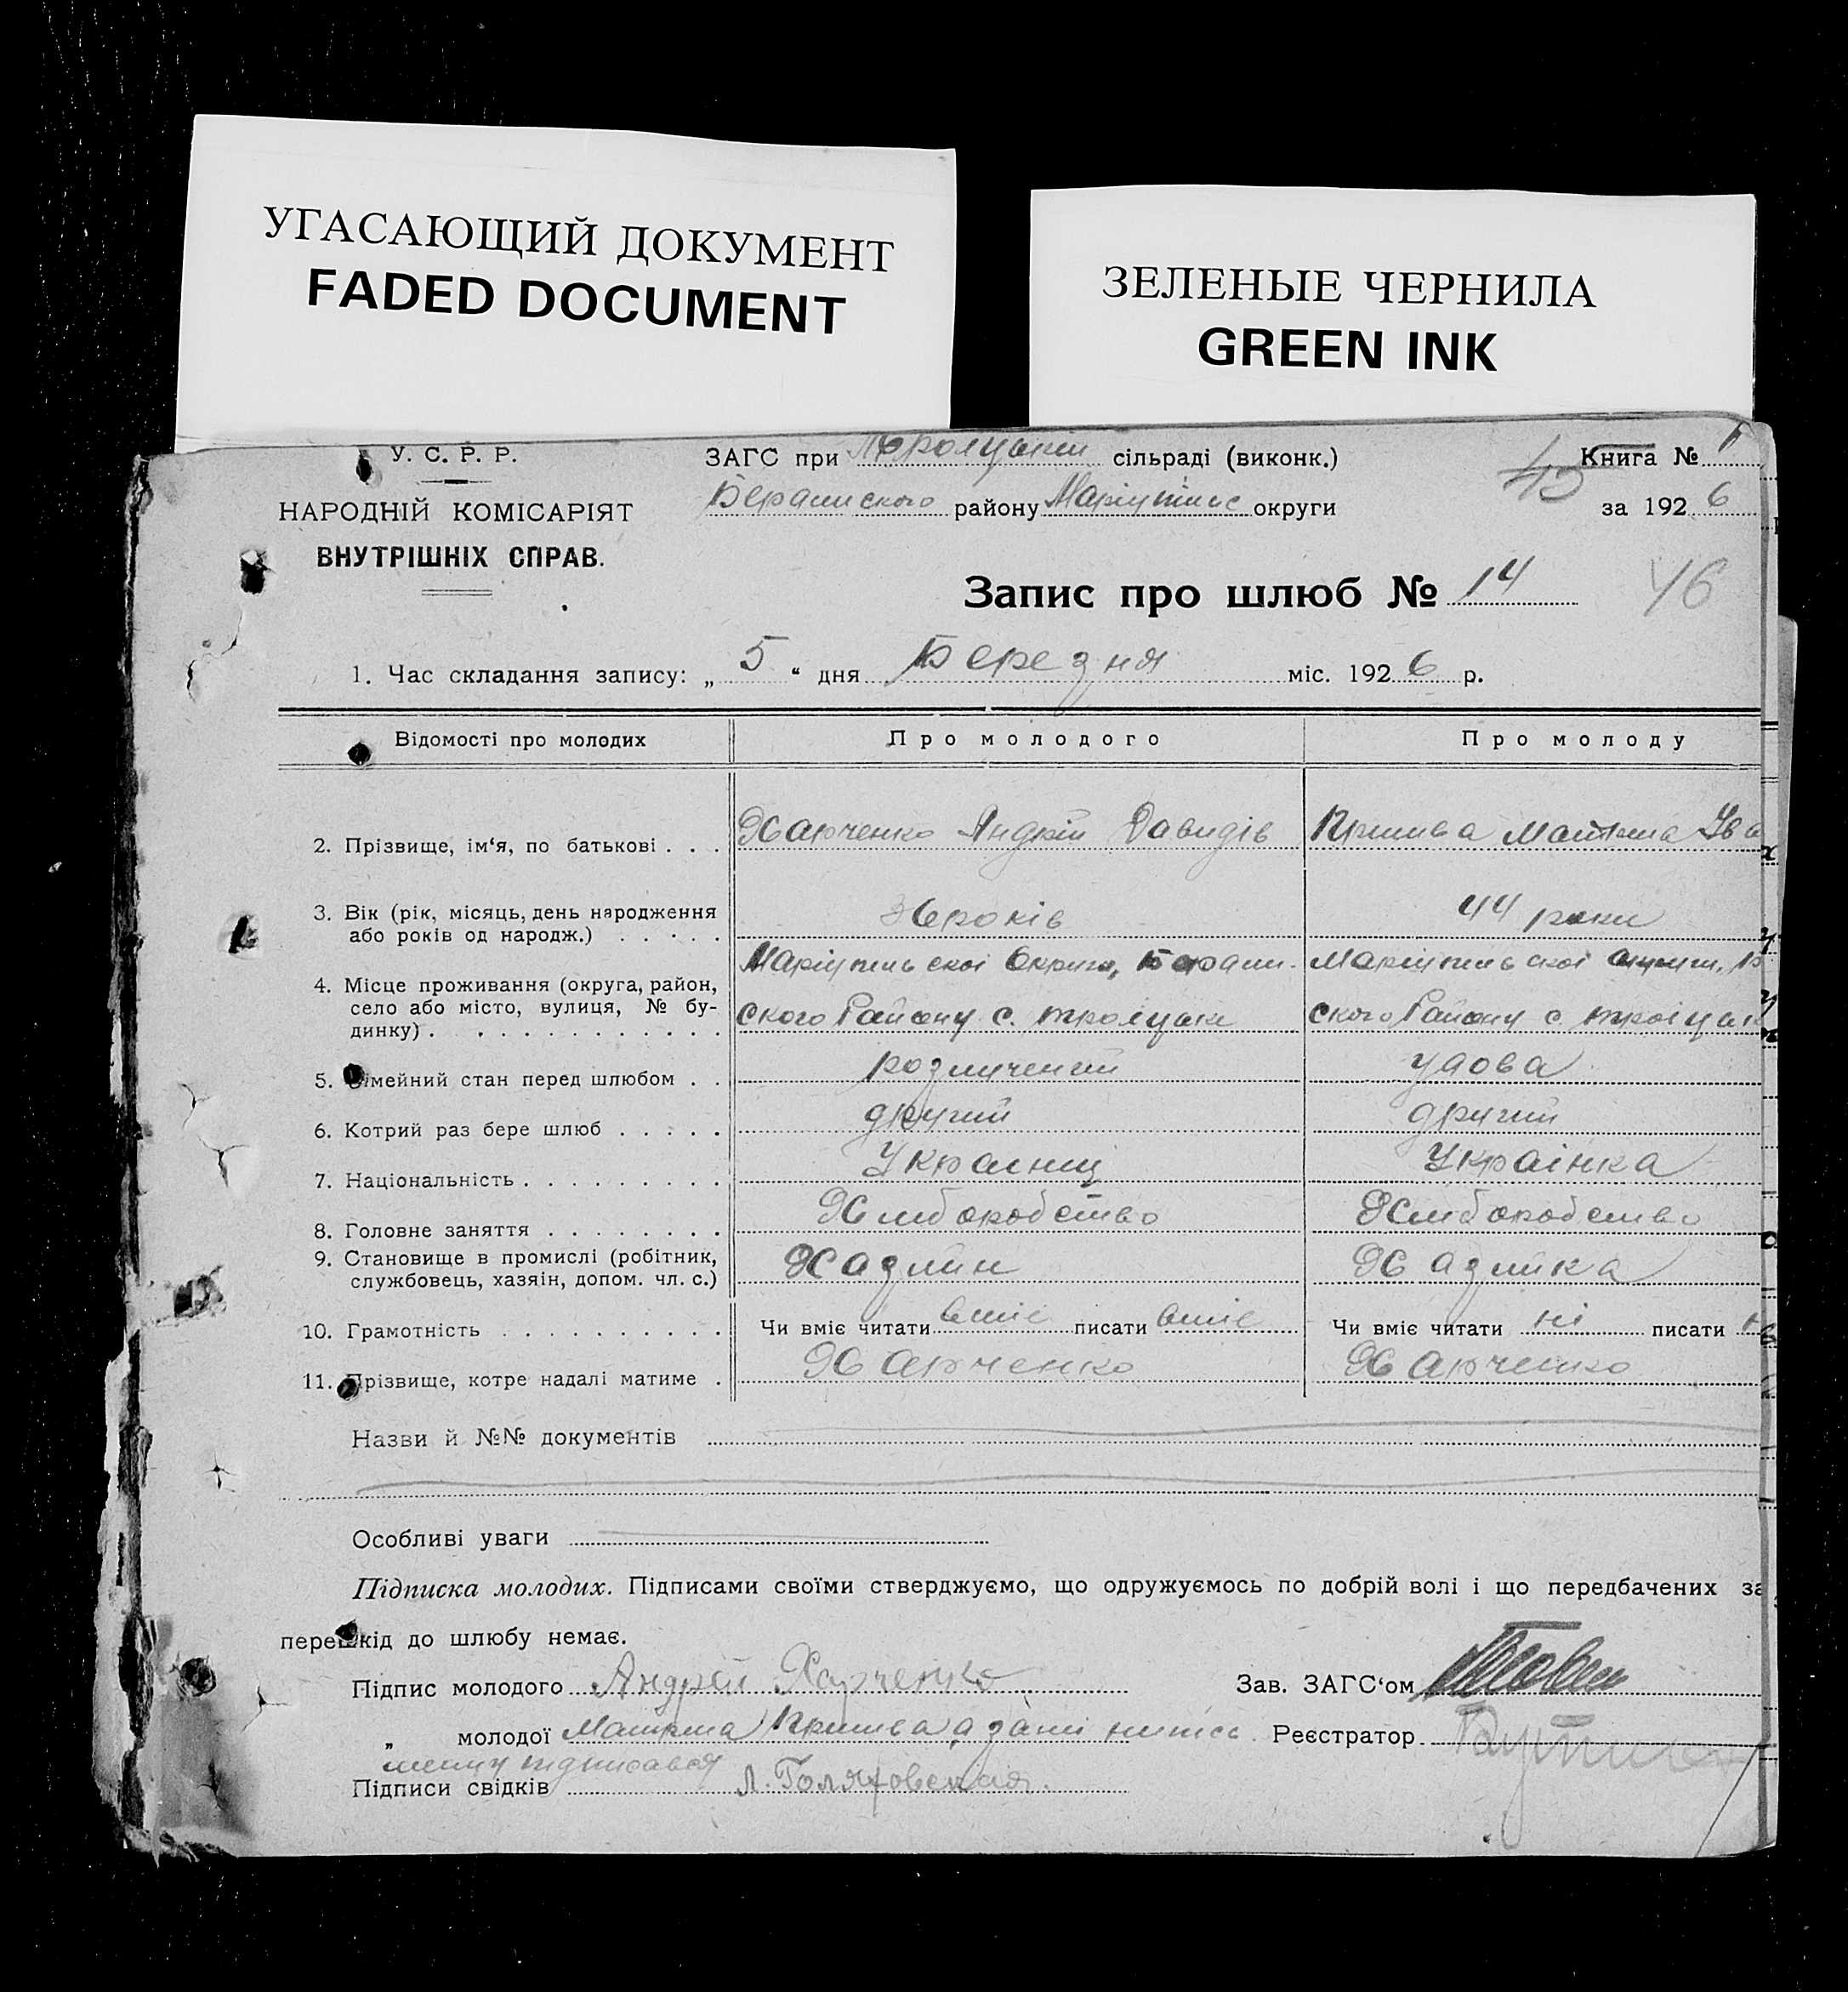 УГАСАЮЩИЙ ДОКУМЕНТ
FADED DOCUMENT
ЗЕЛЕНЫЕ ЧЕРНИЛА
GREEN INK
У. С. Р. Р.
НАРОДНІЙ КОМІСАРІЯТ
ВНУТРІШНІХ СПРАВ.
ЗАГС при сільраді (виконк.)
району Маріупільс округи
45
Книга №
за 192 6
Запис про шлюб № 14
46
1. Час складання запису: „ 5 “ дня Березня міс. 192 6 р.
Відомості про молодих Про молодого Про молоду
2. Прізвище, ім‘я, по батькові . . . Харченко Андрій Давидів
3. Вік (рік, місяць, день народження
або років од народж.) . . . . . 36 років 44 роки
4. Місце проживання (округа, район,
село або місто, вулиця, № бу-
динку) . . . . . . . . . . . .
Маріупільскоі Округи,
ского Району с.
Маріупільскоі
ского Району с.
5. імейний стан перед шлюбом . . удова
6. Котрий раз бере шлюб . . . . . другий другий
7. Національність . . . . . . . . . Украінец Украінка
8. Головне заняття . . . . . . . . Хліборобство Хліборобство
9. Становище в промислі (робітник,
службовець, хазяін, допом. чл. с.) Хазяїн Хазяйка
10. Грамотність . . . . . . . . . . Чи вміє читати вміє писати вміє Чи вміє читати ні писати
11. Прізвище, котре надалі матиме . Харченко Харченко
Назви й №№ документів
Особливі уваги
Підписка молодих. Підписами своїми стверджуємо, що одружуємось по добрій волі і що передбачених за
перешкід до шлюбу немає.
Підпис молодого Андрей Харченко Зав. ЗАГС‘ом
„ молодої Реєстратор
Підписи свідків